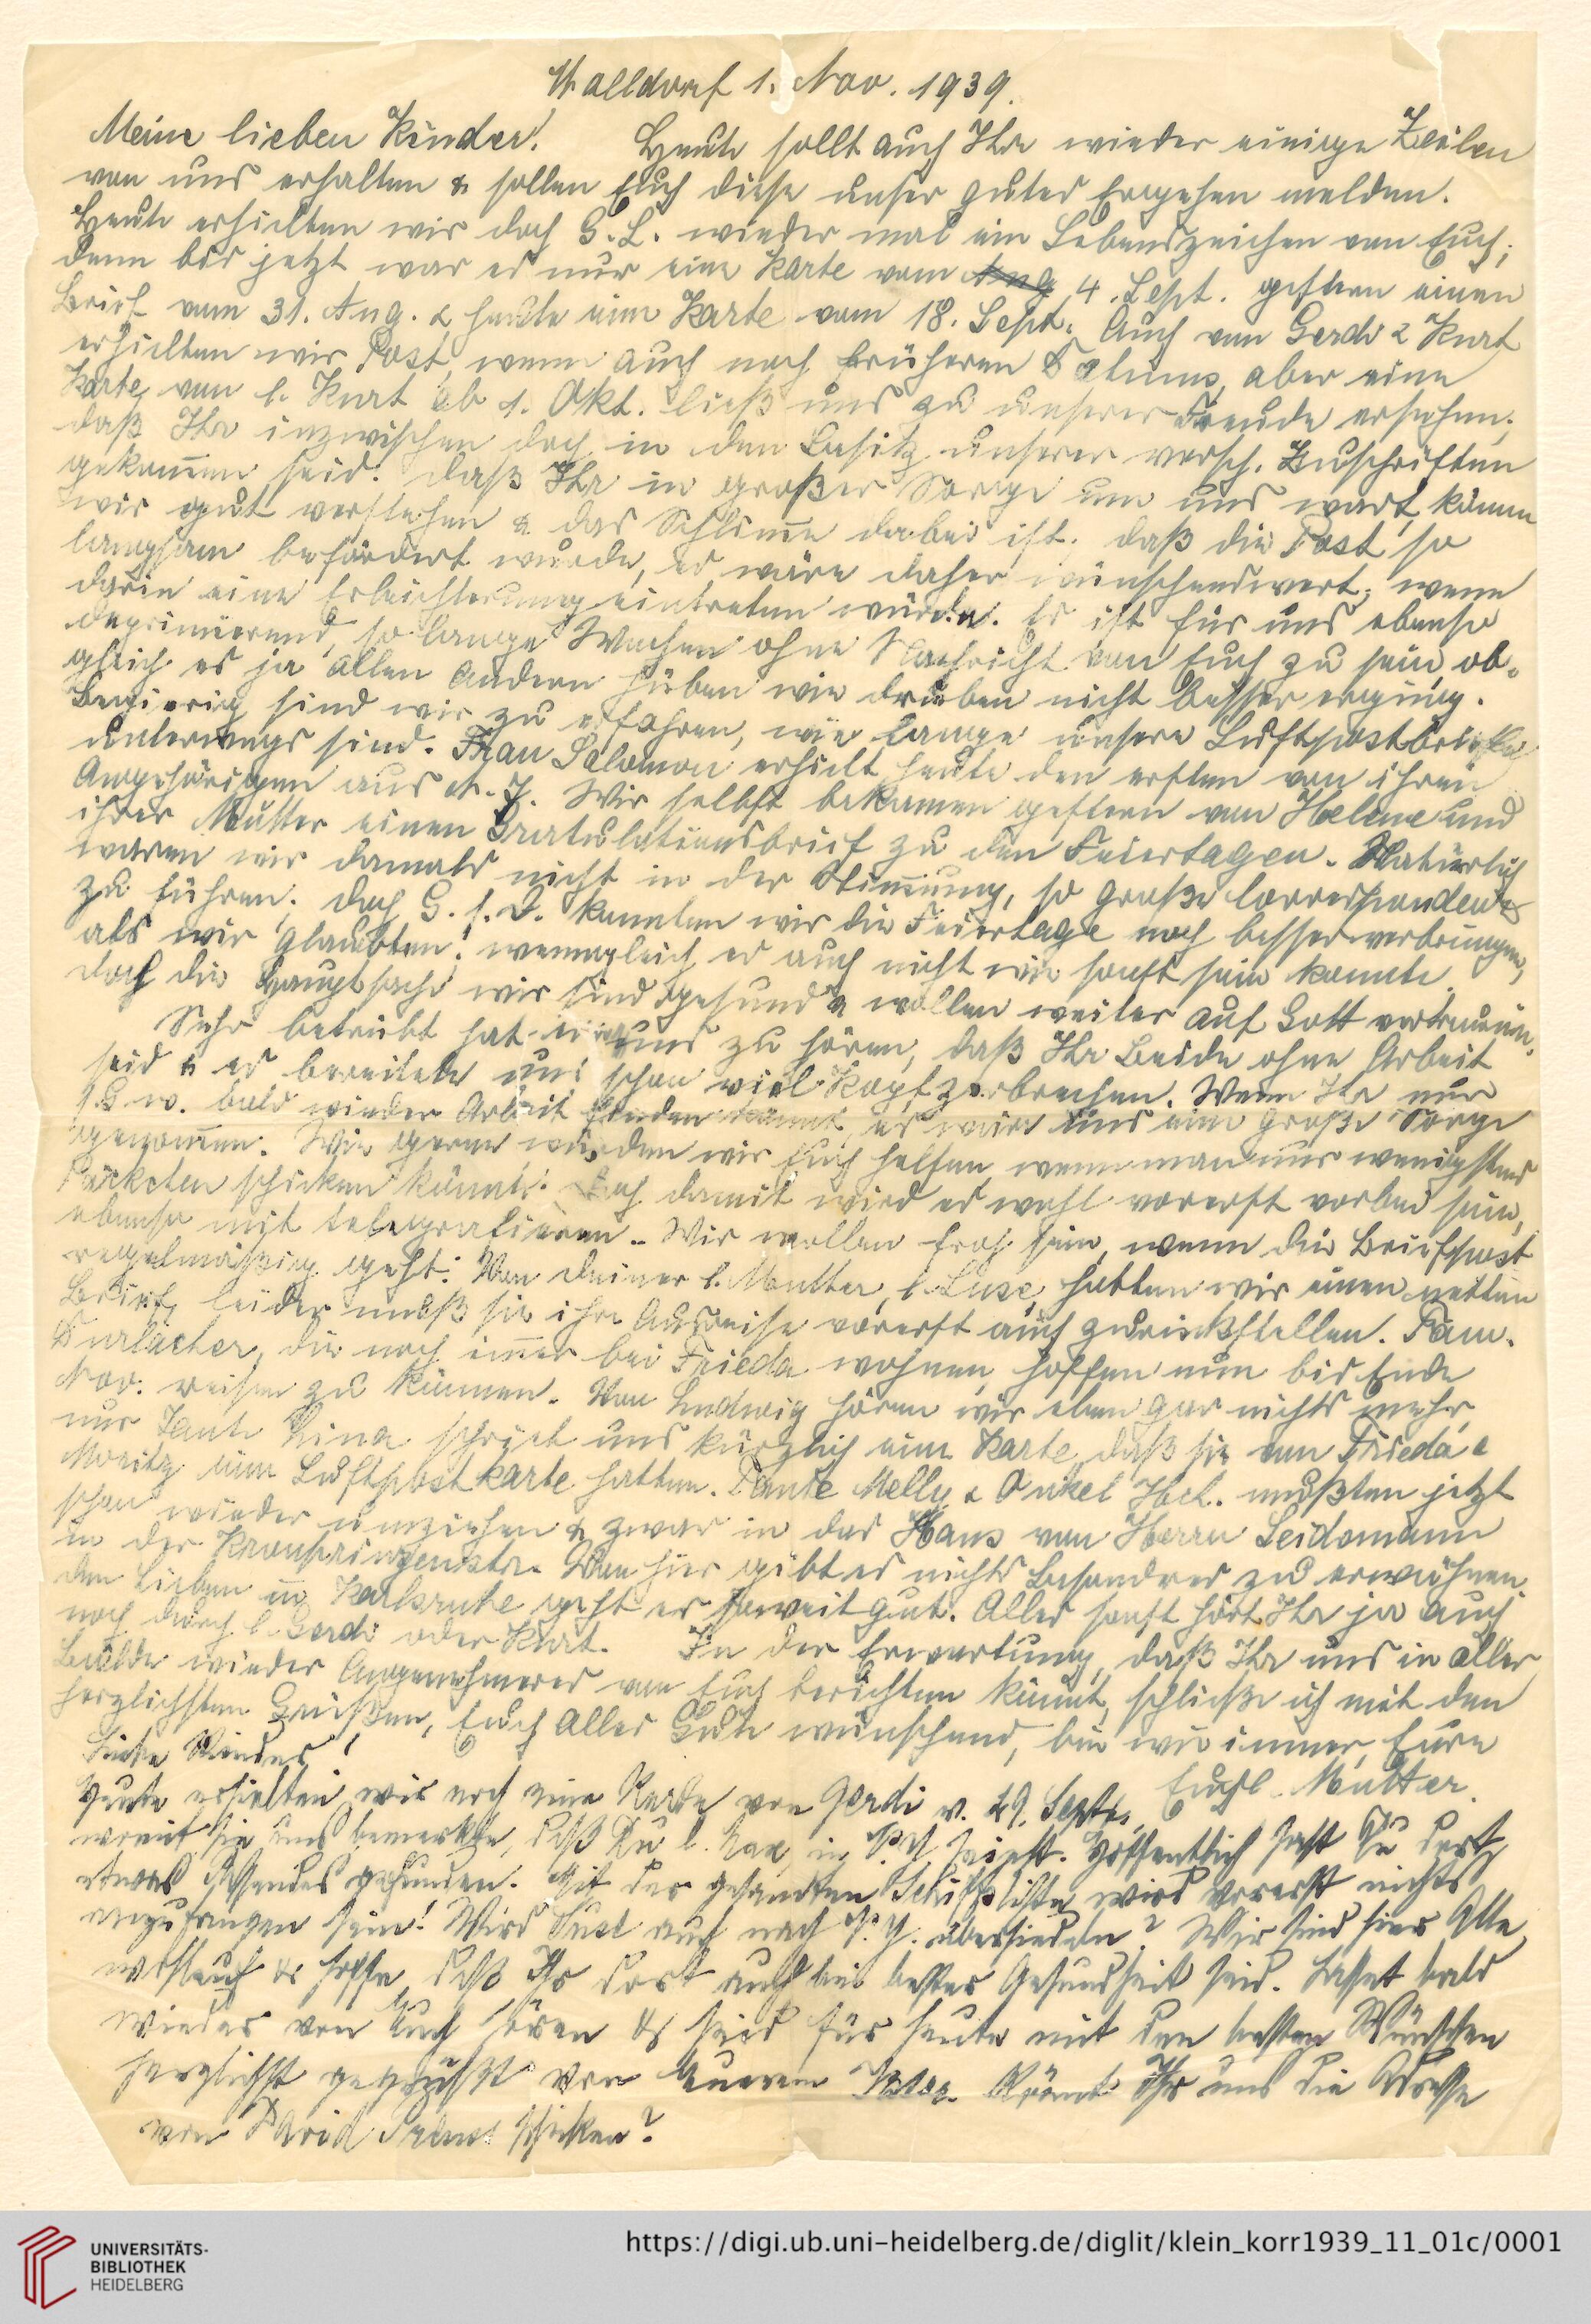 Walldorf 1. Nov. 1939.
Meine lieben Kinder! Heute sollt auch Ihr wieder einige Zeilen
von uns erhalten & sollen Euch diese unser gutes Ergehen melden.
Heute erhielten wir doch G. L. wieder mal ein Lebenszeichen von Euch;
denn bis jetzt war es nur eine Karte vom Aug 4. Sept. gestern einen
Brief vom 31. Aug. & heute eine Karte vom 18. Sept. Auch von Gerdi & Kurt
erhielten wir Post, wenn auch noch früheren Datums, aber eine
Karte von l. Kurt ab 1. Okt. ließ uns zu unserer Freude ersehen,
daß Ihr inzwischen doch in den Besitz unserer versch. Zuschriften
gekommen seid. Daß Ihr in großer Sorge um uns wart, können
wir gut verstehen & das Schlimme dabei ist, daß die Post so
langsam befördert wurde, es wäre daher wünschenswert, wenn
darin eine Erleichterung eintreten würde. Es ist für uns ebenso
deprimierend, so lange Wochen ohne Nachricht von Euch zu sein, ob-
gleich es ja allen andern hüben wie drüben nicht besser erging.
Begierig sind wir zu erfahren, wie lange unsere Luftpostbriefe
unterwegs sind. Frau Salomon erhielt heute den ersten von ihren
Angehörigen aus N. Y. Wir selbst bekamen gestern von Helene und
ihrer Mutter einen Gratulationsbrief zu den Feiertagen. Natürlich
waren wir damals nicht in der Stimmung, so große Correspondenz
zu führen. Doch G. s. D. konnten wir die Feiertage noch besser verbringen,
als wir glaubten, wenngleich es auch nicht wie sonst sein konnte.
doch die Hauptsache wir sind gesund & wollen weiter auf Gott vertrauen.
Sehr betrübt hat uns zu hören, daß Ihr Beide ohne Arbeit
seid & es bereitete uns schon viel Kopfzerbrechen. Wenn Ihr nur
s. G. w. bald wieder Arbeit finden könnt, es wäre uns eine große Sorge
genommen. Wie gerne würden wir Euch helfen, wenn man nur wenigstens
Päckchen schicken könnte. Doch damit wird es wohl vorerst vorbei sein,
ebenso mit telegrafieren. Wir wollen froh sein, wenn die Briefpost
regelmäßig geht. Von Deiner l. Mutter, l. Luse, hatten wir einen netten
Brief, leider muß sie ihre Ausreise vorerst auch zurückstellen. Fam.
Durlacher, die noch immer bei Frieda wohnen, hoffen nun bis Ende
Nov. reisen zu können. Von Ludwig hören wir eben gar nichts mehr,
nur Tante Lina schrieb uns kürzlich eine Karte, daß sie von Frieda &
Moritz eine Luftpostkarte hatten. Tante Melly & Onkel Hch. mußten jetzt
schon wieder umziehen & zwar in das Haus von Herrn Seidemann
in der Kronprinzenstr. Von hier gibt es nichts Besondres zu erwähnen.
den Lieben in Karlsruhe geht es soweit gut. Alles sonst hört Ihr ja auch
noch durch l. Gerdi oder Kurt. In der Erwartung, daß Ihr uns in aller
Bälde wieder Angenehmeres von Euch berichten könnt, schließe ich mit den
herzlichsten Grüßen, Euch Alles Gute wünschend, bin wie immer, Eure
Euchl. Mutter.
Liebe Kinder!
Heute erhielten wir noch eine Karte von Gerdi v. 29. Sept.,
womit sie uns bemerkte, daß Du l. Max, in P. Y. bist. Hoffentlich hast Du dort
etwas Passendes gefunden. Mit der gesandten Schiffsliste wird vorerst nichts
anzufangen sein! Wird Luse auch nach P. Y. übersiedeln? Wir sind hier Alle
wohlauf & hoffe, daß Ihr dort auch bei bester Gesundheit seid. Lasset bald
wieder von Euch hören & seid für heute mit den besten Wünschen
herzlichst gegrüßt von Euerem Vater. Könnt Ihr uns die Adresse
von David schicken?
UNIVERSITÄTS-
BIBLIOTHEK
HEIDELBERG
https://digi.ub.uni-heidelberg.de/diglit/klein_korr1939_11_01c/0001